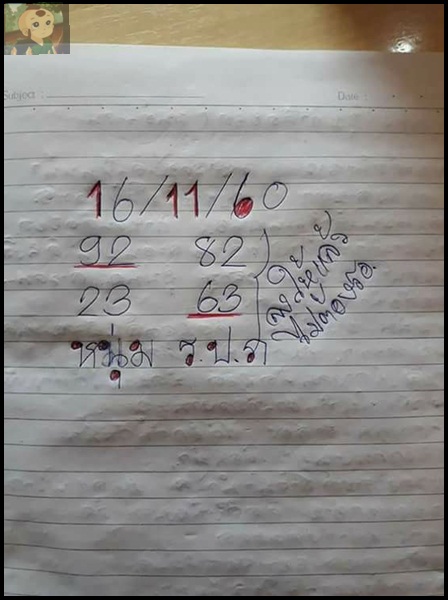 Subject :
Date :
16/11/60
92 82
23 63
หนุ่ม ร.ป.ภ
ลงให้แล้ว
ไม่ต้องรอ.